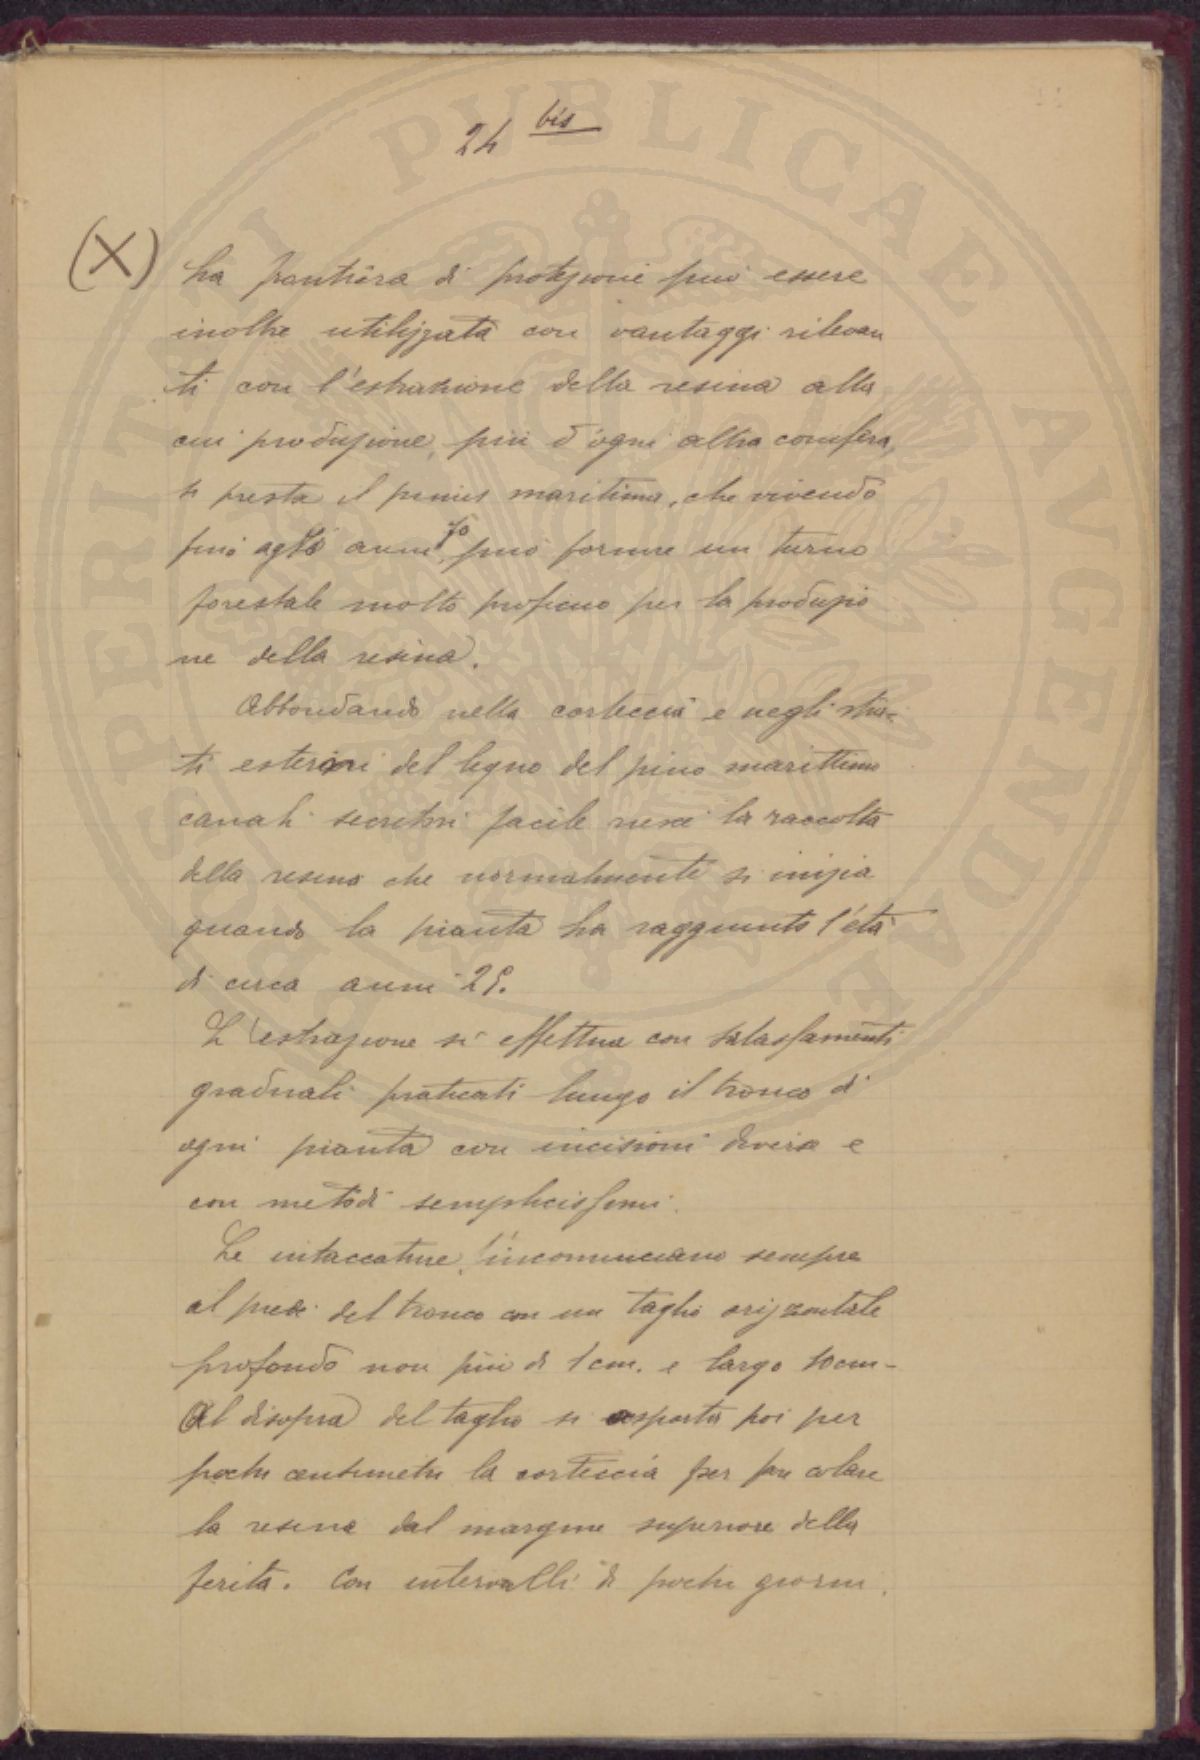 24 bis
(X) La frontiera di protezione può essere
inoltre utilizzata con vantaggi rilevan
ti con l'estrazione della resina alla
cui produzione, più d'ogni altra conifera,
si presta il pinus maritima, che vivendo
fino agli anni 70 può fornire un turno
forestale molto proficuo per la produzio
ne della resina.
Abbondando nella corteccia e negli stra-
ti esteriori del legno del pino marittimo
canali secretori facile riesce la raccolta
della resina che normalmente si inizia
quando la pianta ha raggiunto l'età
di circa anni 25.
L'estrazione si effettua con salassamenti
graduali praticati lungo il tronco di
ogni pianta con incisioni diverse e
con metodi semplicissimi.
Le intaccature, s'incominciano sempre
al piede del tronco con un taglio orizzontale
profondo non più di 1 cm. e largo 10 cm-
Al disopra del taglio si asporta poi per
pochi centimetri la corteccia per far colare
la resina dal margine superiore della
ferita. Con intervalli di pochi giorni
PROSPERITATI PUBLICAE AVGENDAE